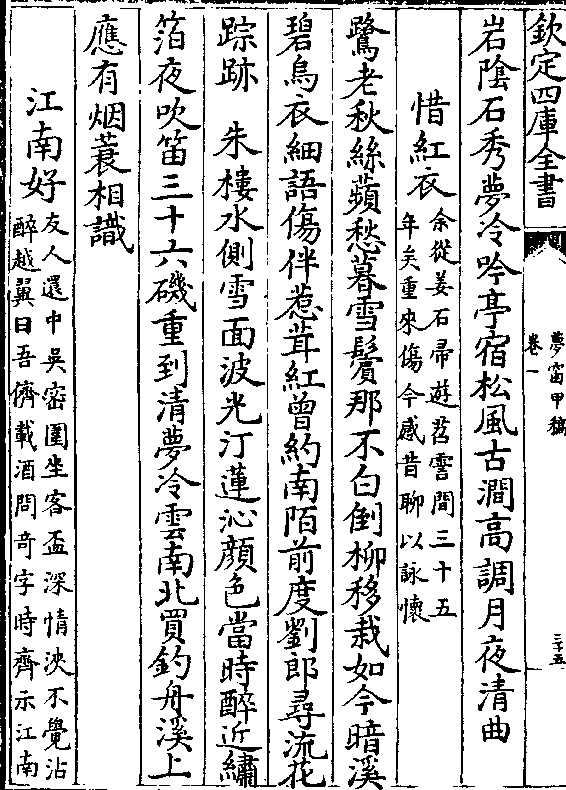 欽定四庫全書
夢窗甲稿
卷一
三十五
岩陰石秀夢冷吟亭宿松風古澗高調月夜清曲
惜紅衣
余從姜石帚遊苕霅間三十五
年矣重來傷今感昔聊以詠懷
鷺老秋絲蘋愁暮雪鬢那不白倒柳移栽如今暗溪
碧烏衣細語傷伴惹茸紅曾約南陌前度劉郎尋流花
踪跡 朱樓水側雪面波光汀蓮沁顔色當時醉近繡
箔夜吹笛三十六磯重到清夢冷雲南北買釣舟溪上
應有烟蓑相識
江南好
友人還中吳密圍坐客盃深情浹不覺沾
醉越翼日吾儕載酒問奇字時齊示江南